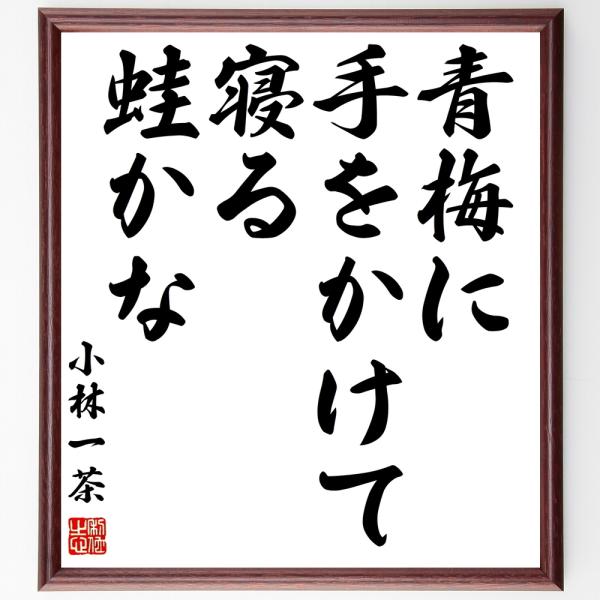 青梅に
手をかけて
寝る
蛙かな
小林一茶